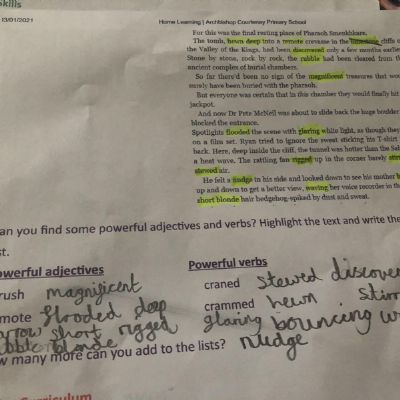 skills
13/01/2021 Home Learning | Archbishop Courtenay Primary School
For this was the final resting place of Pharaoh Smenkhkare.
The tomb, hewn deep into a remote crevasse in the limestone cliffs o
the Valley of the Kings, had been discovered only a few months earlie
Stone by stone, rock by rock, the rubble had been cleared from th
ancient complex of burial chambers.
So far there'd been no sign of the magnificent treasures that wou
surely have been buried with the pharaoh.
But everyone was certain that in this chamber they would finally hit
jackpot.
And now Dr Pete McNeil was about to slide back the huge boulder
blocked the entrance.
Spotlights flooded the scene with glaring white light, as though they
on a film set. Ryan tried to ignore the sweat sticking his T-shirt
back. Here, deep inside the cliff, the tunnel was hotter than the Sah
a heat wave. The rattling fan rigged up in the corner barely stirr
stewed air.
He felt a nudge in his side and looked down to see his mother b
up and down to get a better view, waving her voice recorder in th
short blonde hair hedgehog-spiked by dust and sweat.
an you find some powerful adjectives and verbs? Highlight the text and write the
st.
owerful adjectives Powerful verbs
rush magnificent craned stewed discover
mote flooded deep crammed hewn stirr
arrow short rigged glaring bouncing w
bble blonde nudge
w many more can you add to the lists?
Curriculum